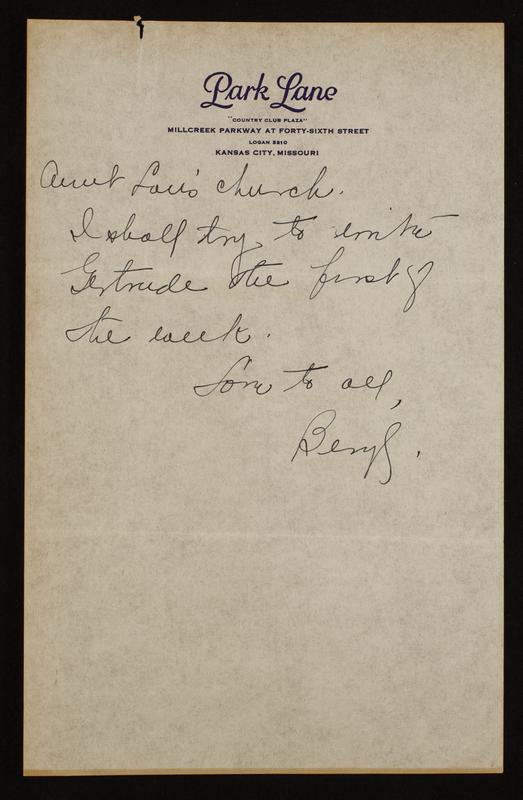 Park Lane
"COUNTRY CLUB PLAZA"
MILLCREEK PARKWAY AT FORTY-SIXTH STREET
LOGAN 5210
KANSAS CITY, MISSOURI
Aunt Lou's church.
I shall try to write
Gertrude the first of
the week.
Love to all,
Beryl.